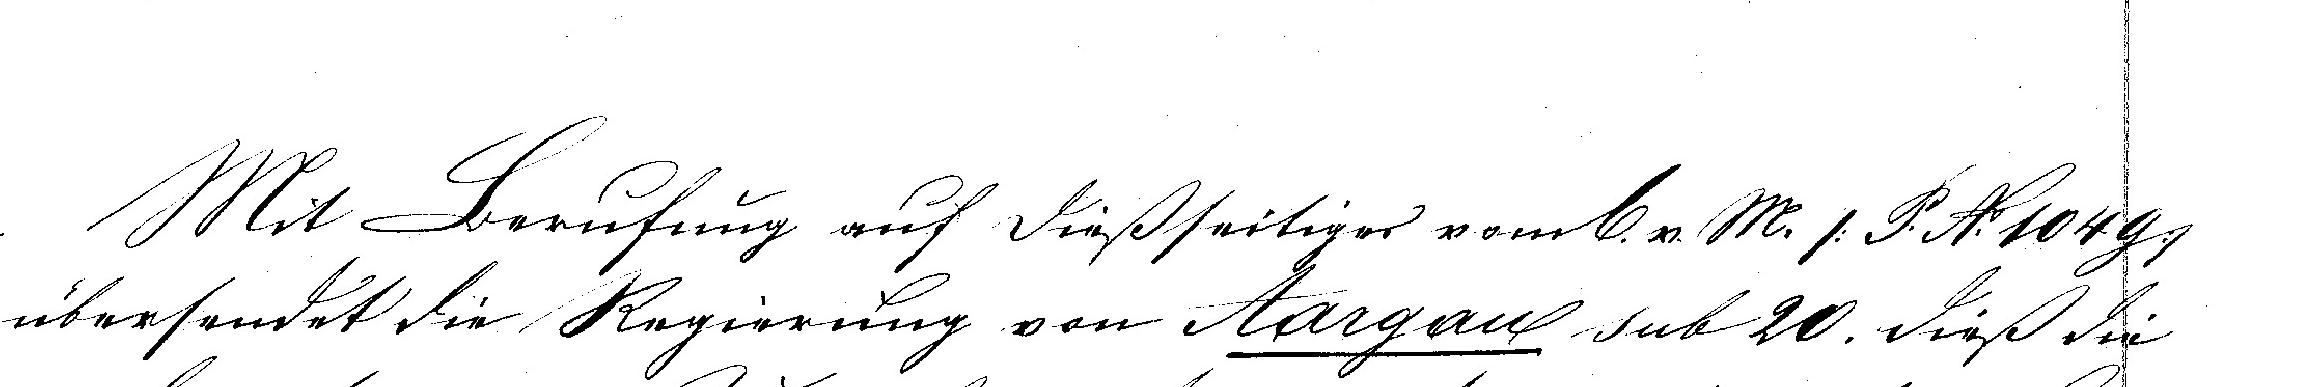 Mit Berufung auf dießseitiges vom 6. v. M. /: P. No. 1049 :/
übersendet die Regierung von Aargau sub 20. dieß die